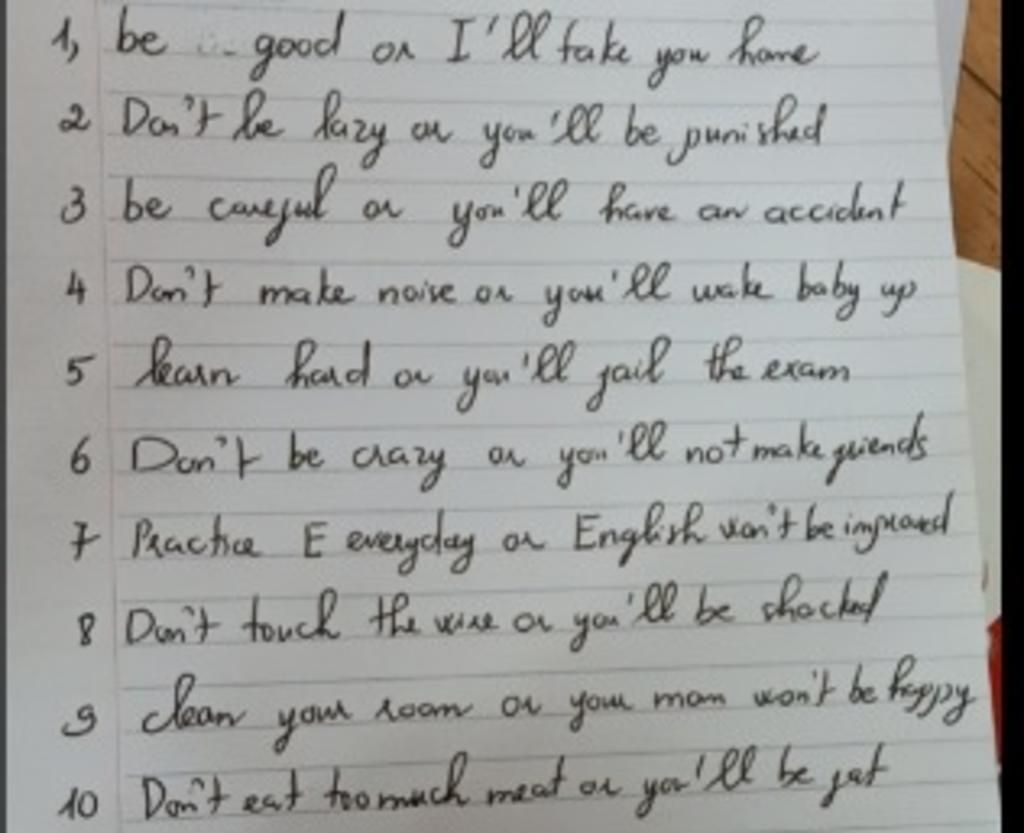 1, be good or I'll take you home
2 Don't be lazy or you'll be punished
3 be careful or you'll have an accident
4 Don't make noise or you'll wake baby up
5 learn hard or you'll fail the exam
6 Don't be crazy or you'll not make friends
7 Practice E everyday or English won't be improved
8 Don't touch the wire or you'll be shocked
9 clean your room or your mom won't be happy
10 Don't eat too much meat or you'll be fat